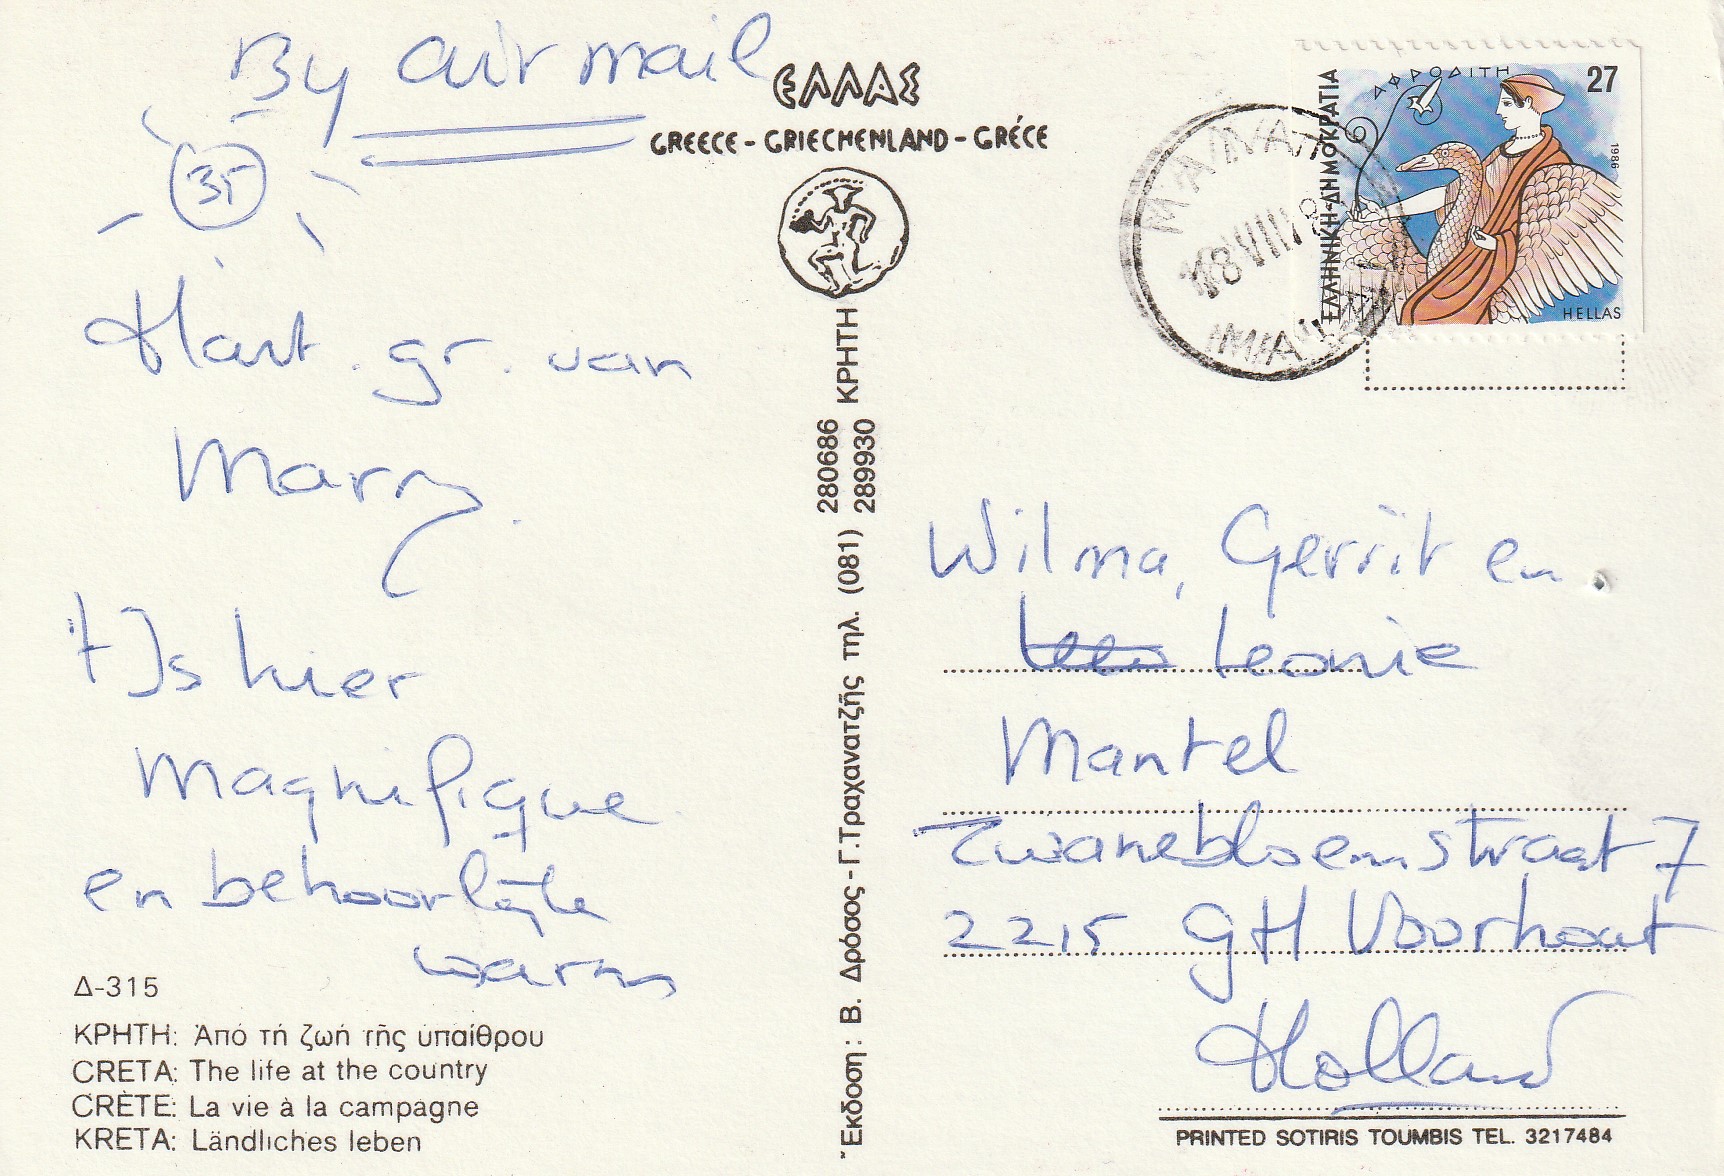 By air mail
35
Hart. gr. van
Marry.
't Is hier
Magnifique
en behoorlijk
warm
Δ-315
ΚΡΗΤΗ: Ἀπό τή ζωή τῆς υπαίθρου
CRETA: The life at the country
CRÈTE: La vie à la campagne
KRETA: Ländliches leben
ΕΛΛΑΣ
GREECE - GRIECHENLAND - GRÉCE
Ἔκδοση: Β. Δρόσος - Γ. Τραχανατζῆς τηλ. (081) 280686 ΚΡΗΤΗ
289930
18 VIII
ΕΛΛΗΝΙΚΗ ΔΗΜΟΚΡΑΤΙΑ
ΑΦΡΟΔΙΤΗ
27
1986
HELLAS
Wilma, Gerrit en
Leonie
Mantel
Zwanebloemstraat 7
2215 GH Voorhout
Holland
PRINTED SOTIRIS TOUMBIS TEL. 3217484